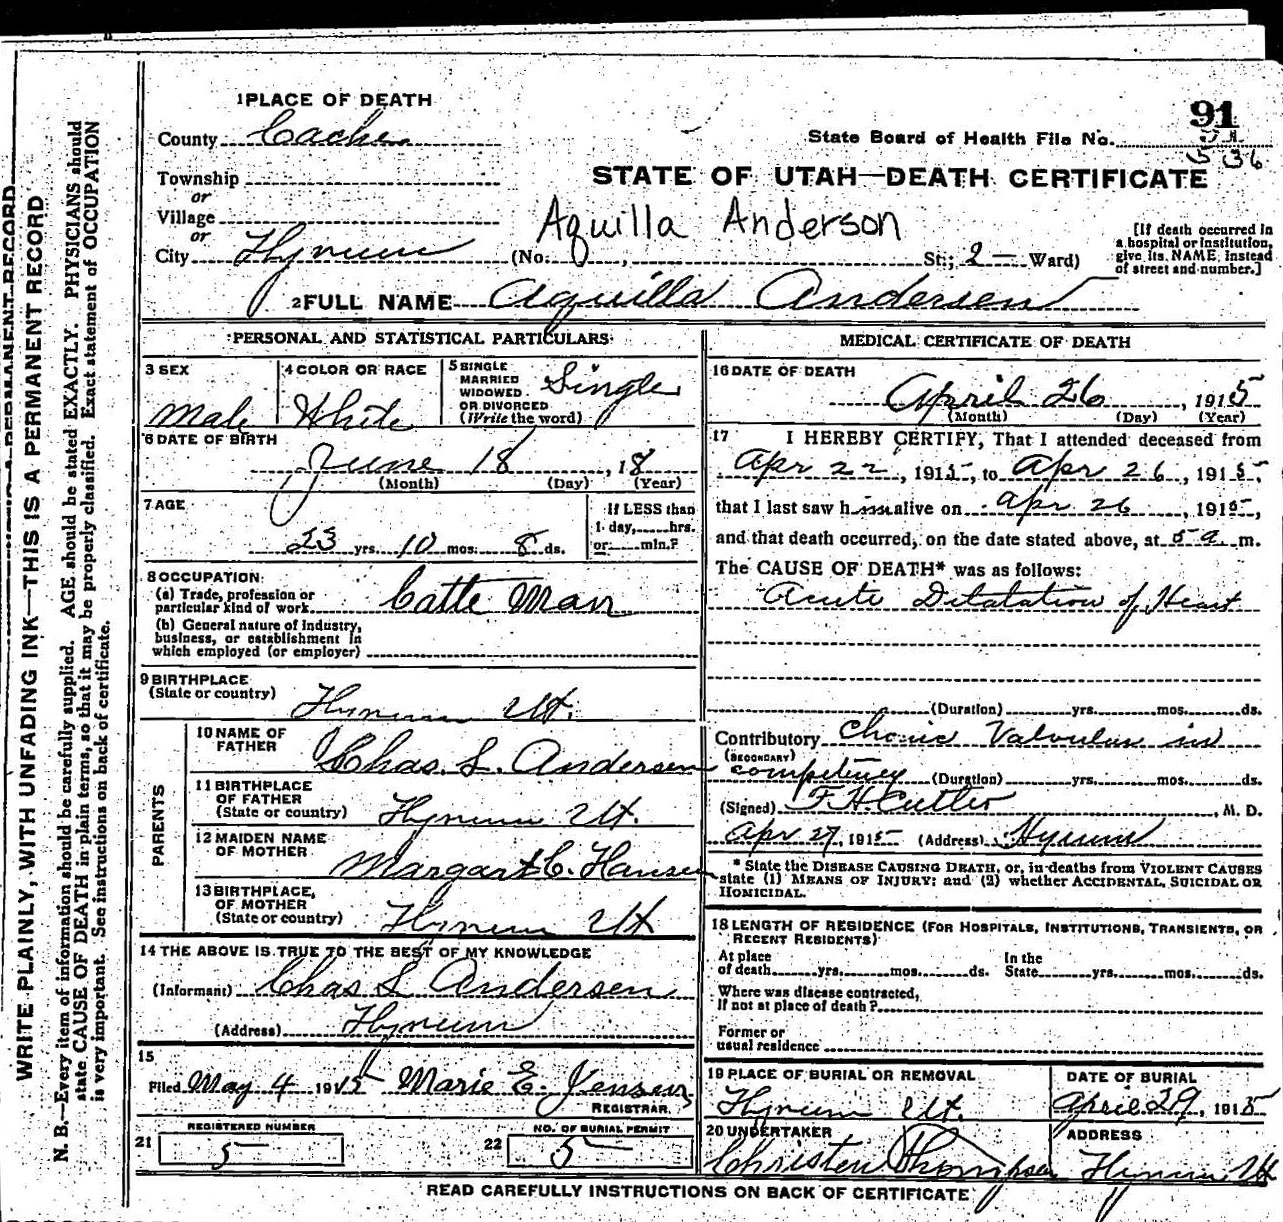 WRITE PLAINLY, WITH UNFADING INK—THIS IS A PERMANENT RECORD
N. B.—Every item of information should be carefully supplied. AGE should be stated EXACTLY. PHYSICIANS should
state CAUSE OF DEATH in plain terms, so that it may be properly classified. Exact statement of OCCUPATION
is very important. See instructions on back of certificate.
1 PLACE OF DEATH
County Cache
Township
or
Village
or
City Hyrum
91
State Board of Health File No.
536
STATE OF UTAH—DEATH CERTIFICATE
Aquilla Anderson
(No. , St.; 2 — Ward)
[If death occurred in
a hospital or institution,
give its NAME instead
of street and number.]
2 FULL NAME Aquilla Andersen
PERSONAL AND STATISTICAL PARTICULARS
3 SEX
Male
4 COLOR OR RACE
White
5 SINGLE
MARRIED
WIDOWED
OR DIVORCED
(Write the word)
Single
6 DATE OF BIRTH
June 18, 18
(Month) (Day) (Year)
7 AGE
23 yrs. 10 mos. 8 ds.
If LESS than
1 day, hrs.
or min.?
8 OCCUPATION:
(a) Trade, profession or
particular kind of work Catte Man
(b) General nature of industry,
business, or establishment in
which employed (or employer)
9 BIRTHPLACE
(State or country)
Hyrum Ut.
PARENTS
10 NAME OF
FATHER
Chas. L. Andersen
11 BIRTHPLACE
OF FATHER
(State or country)
Hyrum Ut.
12 MAIDEN NAME
OF MOTHER
Margart C. Hansen
13 BIRTHPLACE,
OF MOTHER
(State or country)
Hyrum Ut
14 THE ABOVE IS TRUE TO THE BEST OF MY KNOWLEDGE
(Informant) Chas L Andersen
(Address) Hyrum
15
Filed May 4 1915 Marie E. Jensen
REGISTRAR.
21 REGISTERED NUMBER
5
22 NO. OF BURIAL PERMIT
5
MEDICAL CERTIFICATE OF DEATH
16 DATE OF DEATH
April 26, 1915
(Month) (Day) (Year)
17 I HEREBY CERTIFY, That I attended deceased from
Apr 22, 1915, to Apr 26, 1915,
that I last saw him alive on Apr 26, 1915,
and that death occurred, on the date stated above, at 5 a. m.
The CAUSE OF DEATH* was as follows:
Acute Dilatation of Heart
(Duration) yrs. mos. ds.
Contributory Chonic Valvular in
(SECONDARY)
competency (Duration) yrs. mos. ds.
(Signed) F. H. Cutler, M. D.
Apr 27, 1915 (Address) Hyrum
* State the DISEASE CAUSING DEATH, or, in deaths from VIOLENT CAUSES
state (1) MEANS OF INJURY; and (2) whether ACCIDENTAL, SUICIDAL OR
HOMICIDAL.
18 LENGTH OF RESIDENCE (FOR HOSPITALS, INSTITUTIONS, TRANSIENTS, OR
RECENT RESIDENTS)
At place
of death yrs. mos. ds.
In the
State yrs. mos. ds.
Where was disease contracted,
If not at place of death?
Former or
usual residence
19 PLACE OF BURIAL OR REMOVAL
Hyrum Ut.
DATE OF BURIAL
April 29, 1915
20 UNDERTAKER
Christen Thompsen
ADDRESS
Hyrum Ut
READ CAREFULLY INSTRUCTIONS ON BACK OF CERTIFICATE